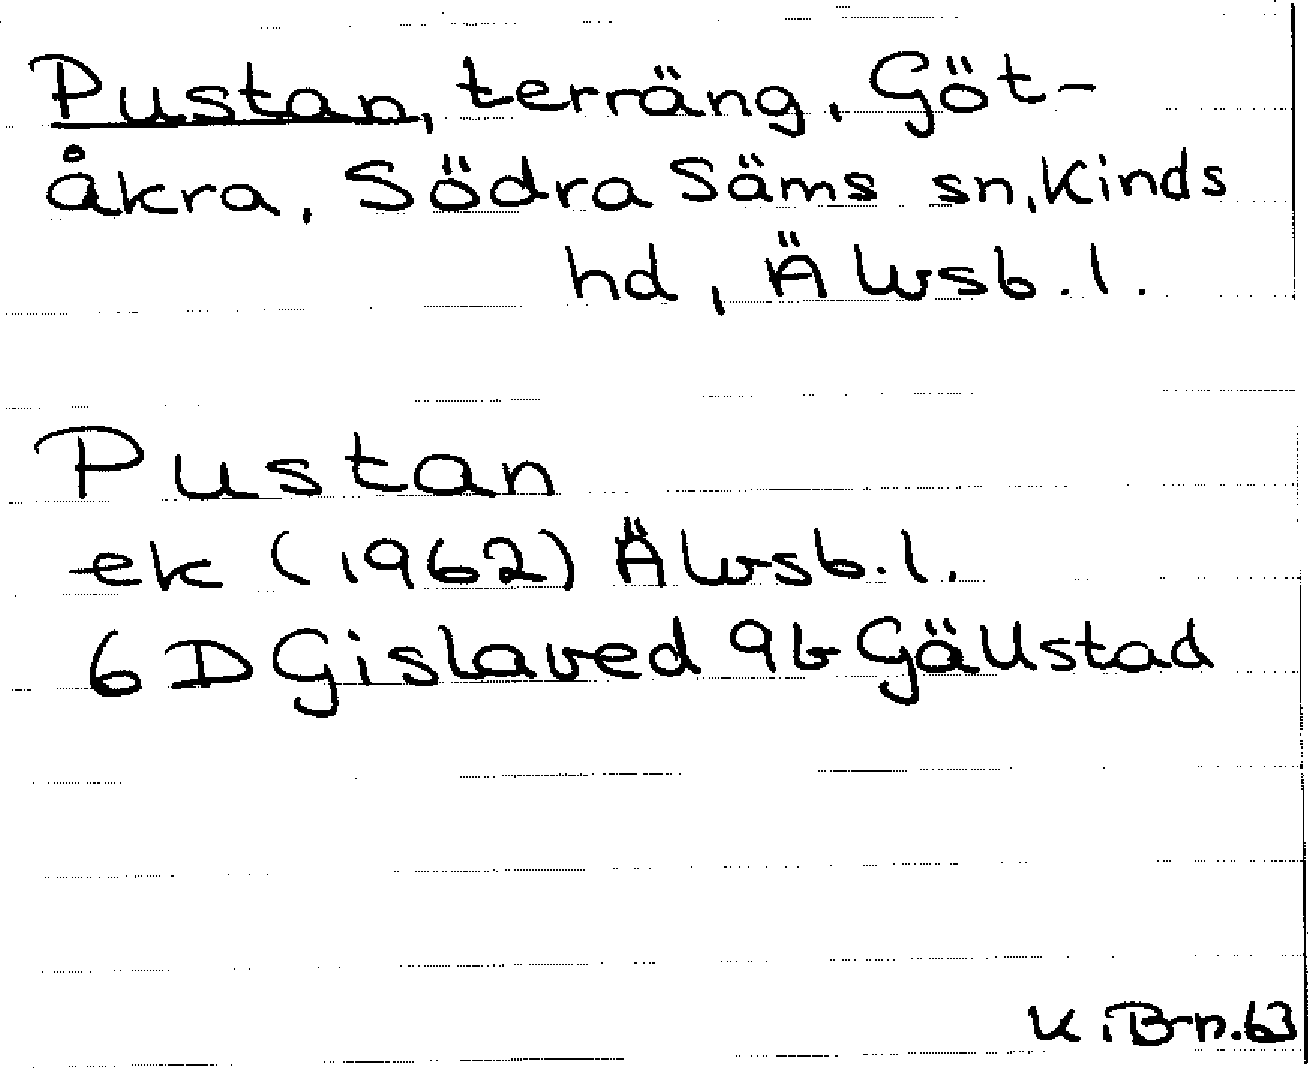 Pustan, terräng, Göt-
åkra, Södra Säms sn, Kinds
hd, Älvsb. l.
Pustan
ek (1962) Älvsb. l.
6 D Gislaved 9b Gällstad
K i B-n. 63